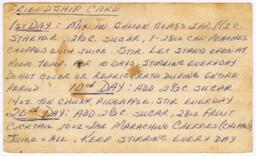 FRIENDSHIP CAKE
1ST DAY: MIX IN GALLON GLASS JAR 1½ C.
STARTER, 2½ C. SUGAR, 1-28OZ CAN PEACHES
CHOPPED WITH JUICE. STIR. LET STAND OPEN AT
ROOM TEMP. FOR 10 DAYS, STIRRING EVERYDAY
DO NOT COVER OR REFRIGERATE DURING ENTIRE
PERIOD. 10TH DAY: ADD 2½ C SUGAR
14 OZ TIN CHUNK PINEAPPLE. STIR EVERYDAY
20TH DAY: ADD 2½ C. SUGAR, 28OZ FRUIT
COCKTAIL 10 OZ JAR MARACHINO CHERRIES (CHOPPED)
JUICE + ALL. KEEP STIRRING EVERY DAY